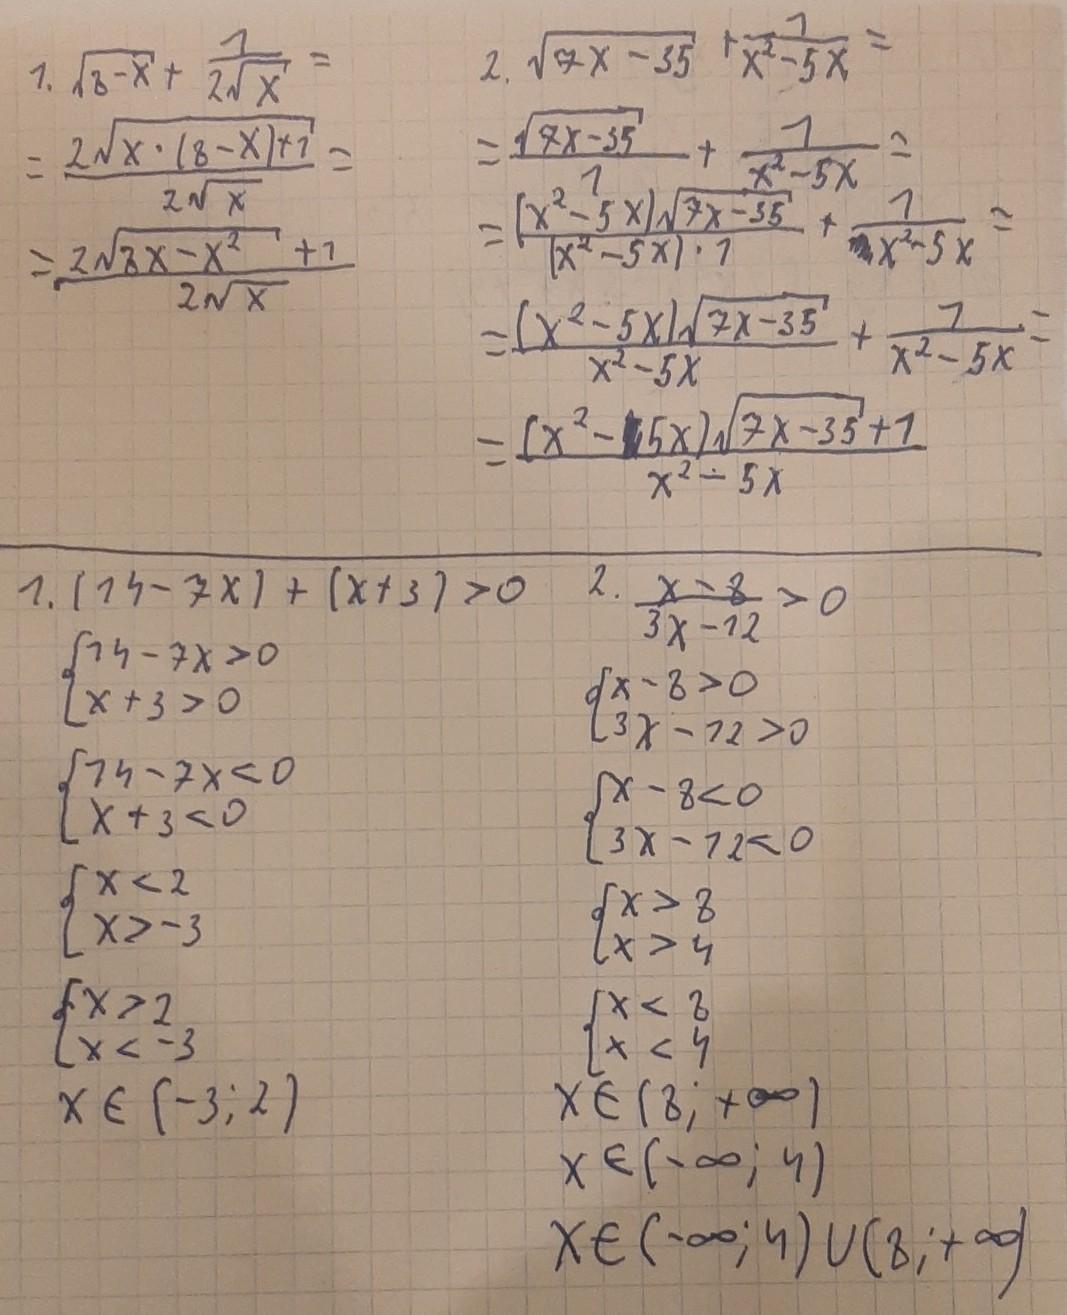 1. √(8-x) + 1/(2√x) =
= (2√(x·(8-x)+1))/(2√x) =
= (2√(8x-x²) +1)/(2√x)
2. √(7x-35) + 1/(x²-5x) =
= √(7x-35)/1 + 1/(x²-5x) =
= ((x²-5x)√(7x-35))/((x²-5x)·1) + 1/(x²-5x) =
= ((x²-5x)√(7x-35))/(x²-5x) + 1/(x²-5x) =
= ((x²-5x)√(7x-35)+1)/(x²-5x)
1. (14-7x) + (x+3) > 0
{14-7x>0
x+3>0
{14-7x<0
x+3<0
{x<2
x>-3
{x>2
x<-3
x∈(-3;2)
2. (x-8)/(3x-12) > 0
{x-8>0
3x-12>0
{x-8<0
3x-12<0
{x>8
x>4
{x<8
x<4
x∈(8;+∞)
x∈(-∞;4)
x∈(-∞;4)∪(8;+∞)